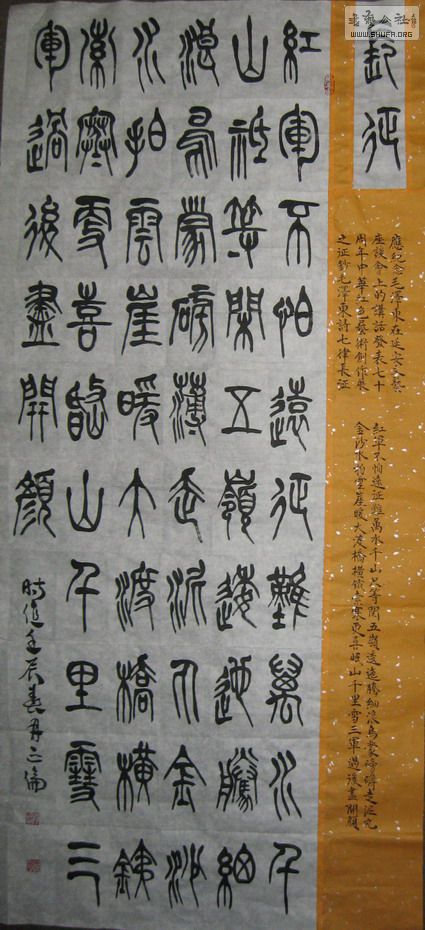 長征
應紀念毛澤東在延安文藝
座談會上的講話發表七十
周年中華紅色藝術創作展
之征鈔毛澤東詩七律長征
紅軍不怕遠征難萬水千山只等閑五嶺逶迤騰細浪烏蒙磅礴走泥丸
金沙水拍雲崖暖大渡橋橫鐵索寒更喜岷山千里雪三軍過後盡開顏
紅軍不怕遠征難萬水千
山祇等閑五嶺逶迤騰細
浪烏蒙磅薄走泥丸金沙
水拍雲崖暖大渡橋橫鐵
索寒更喜岷山千里雪三
軍過後盡開顏
時值壬辰春月正倫
公社
WWW.SHUFA.ORG